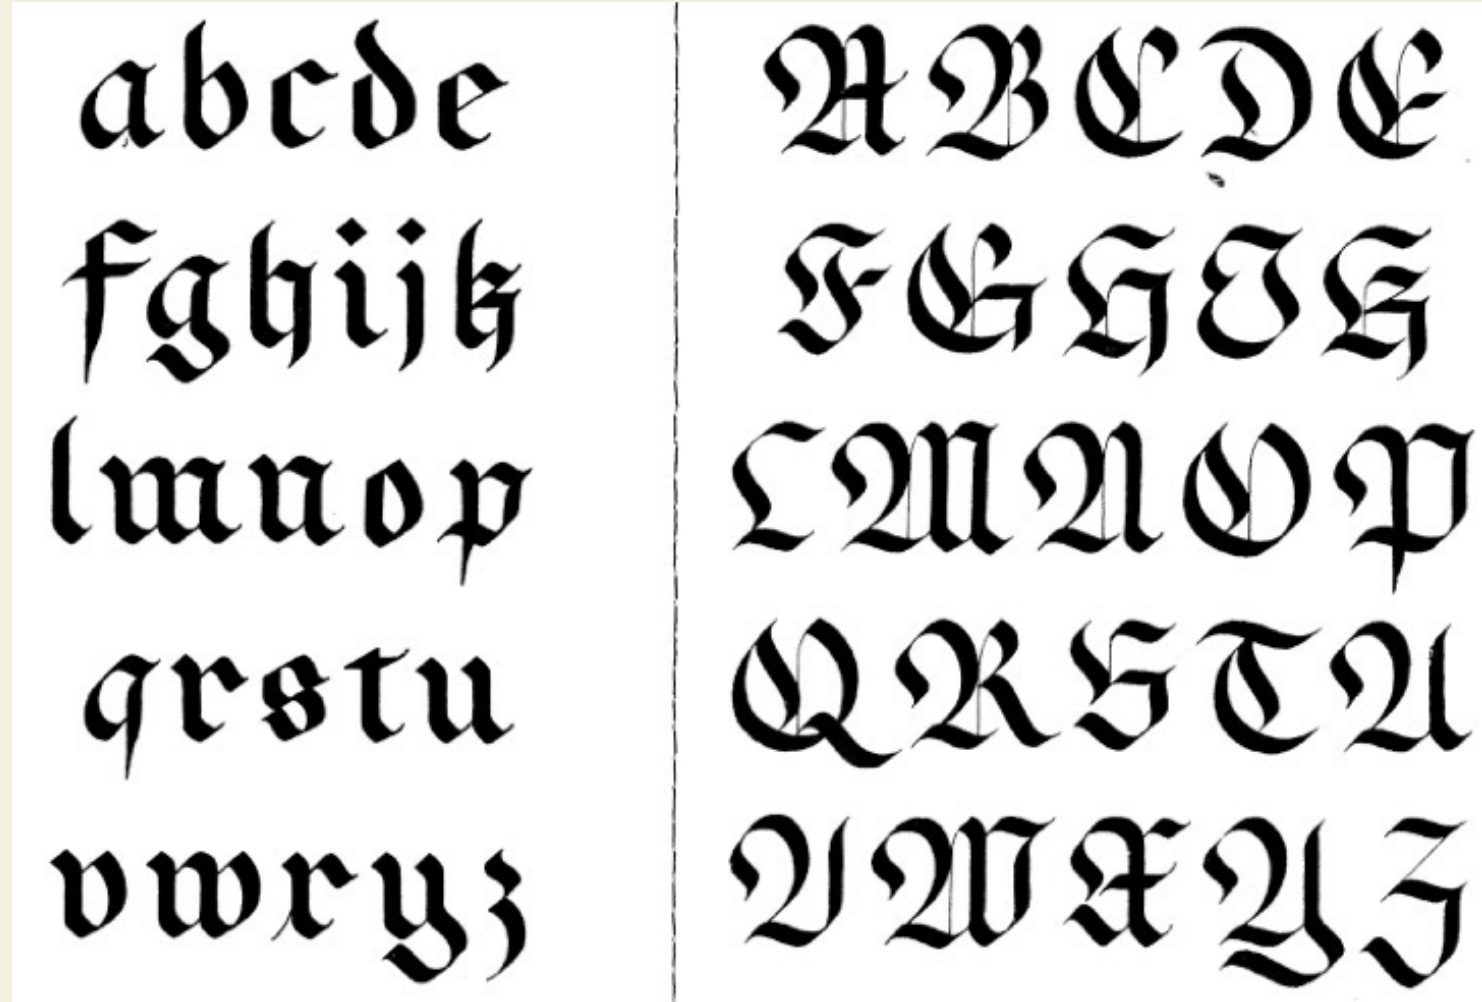 abcde
fghijk
lmnop
qrstu
vwxyz
ABCDE
FGHIK
LMNOP
QRSTU
VWXYZ